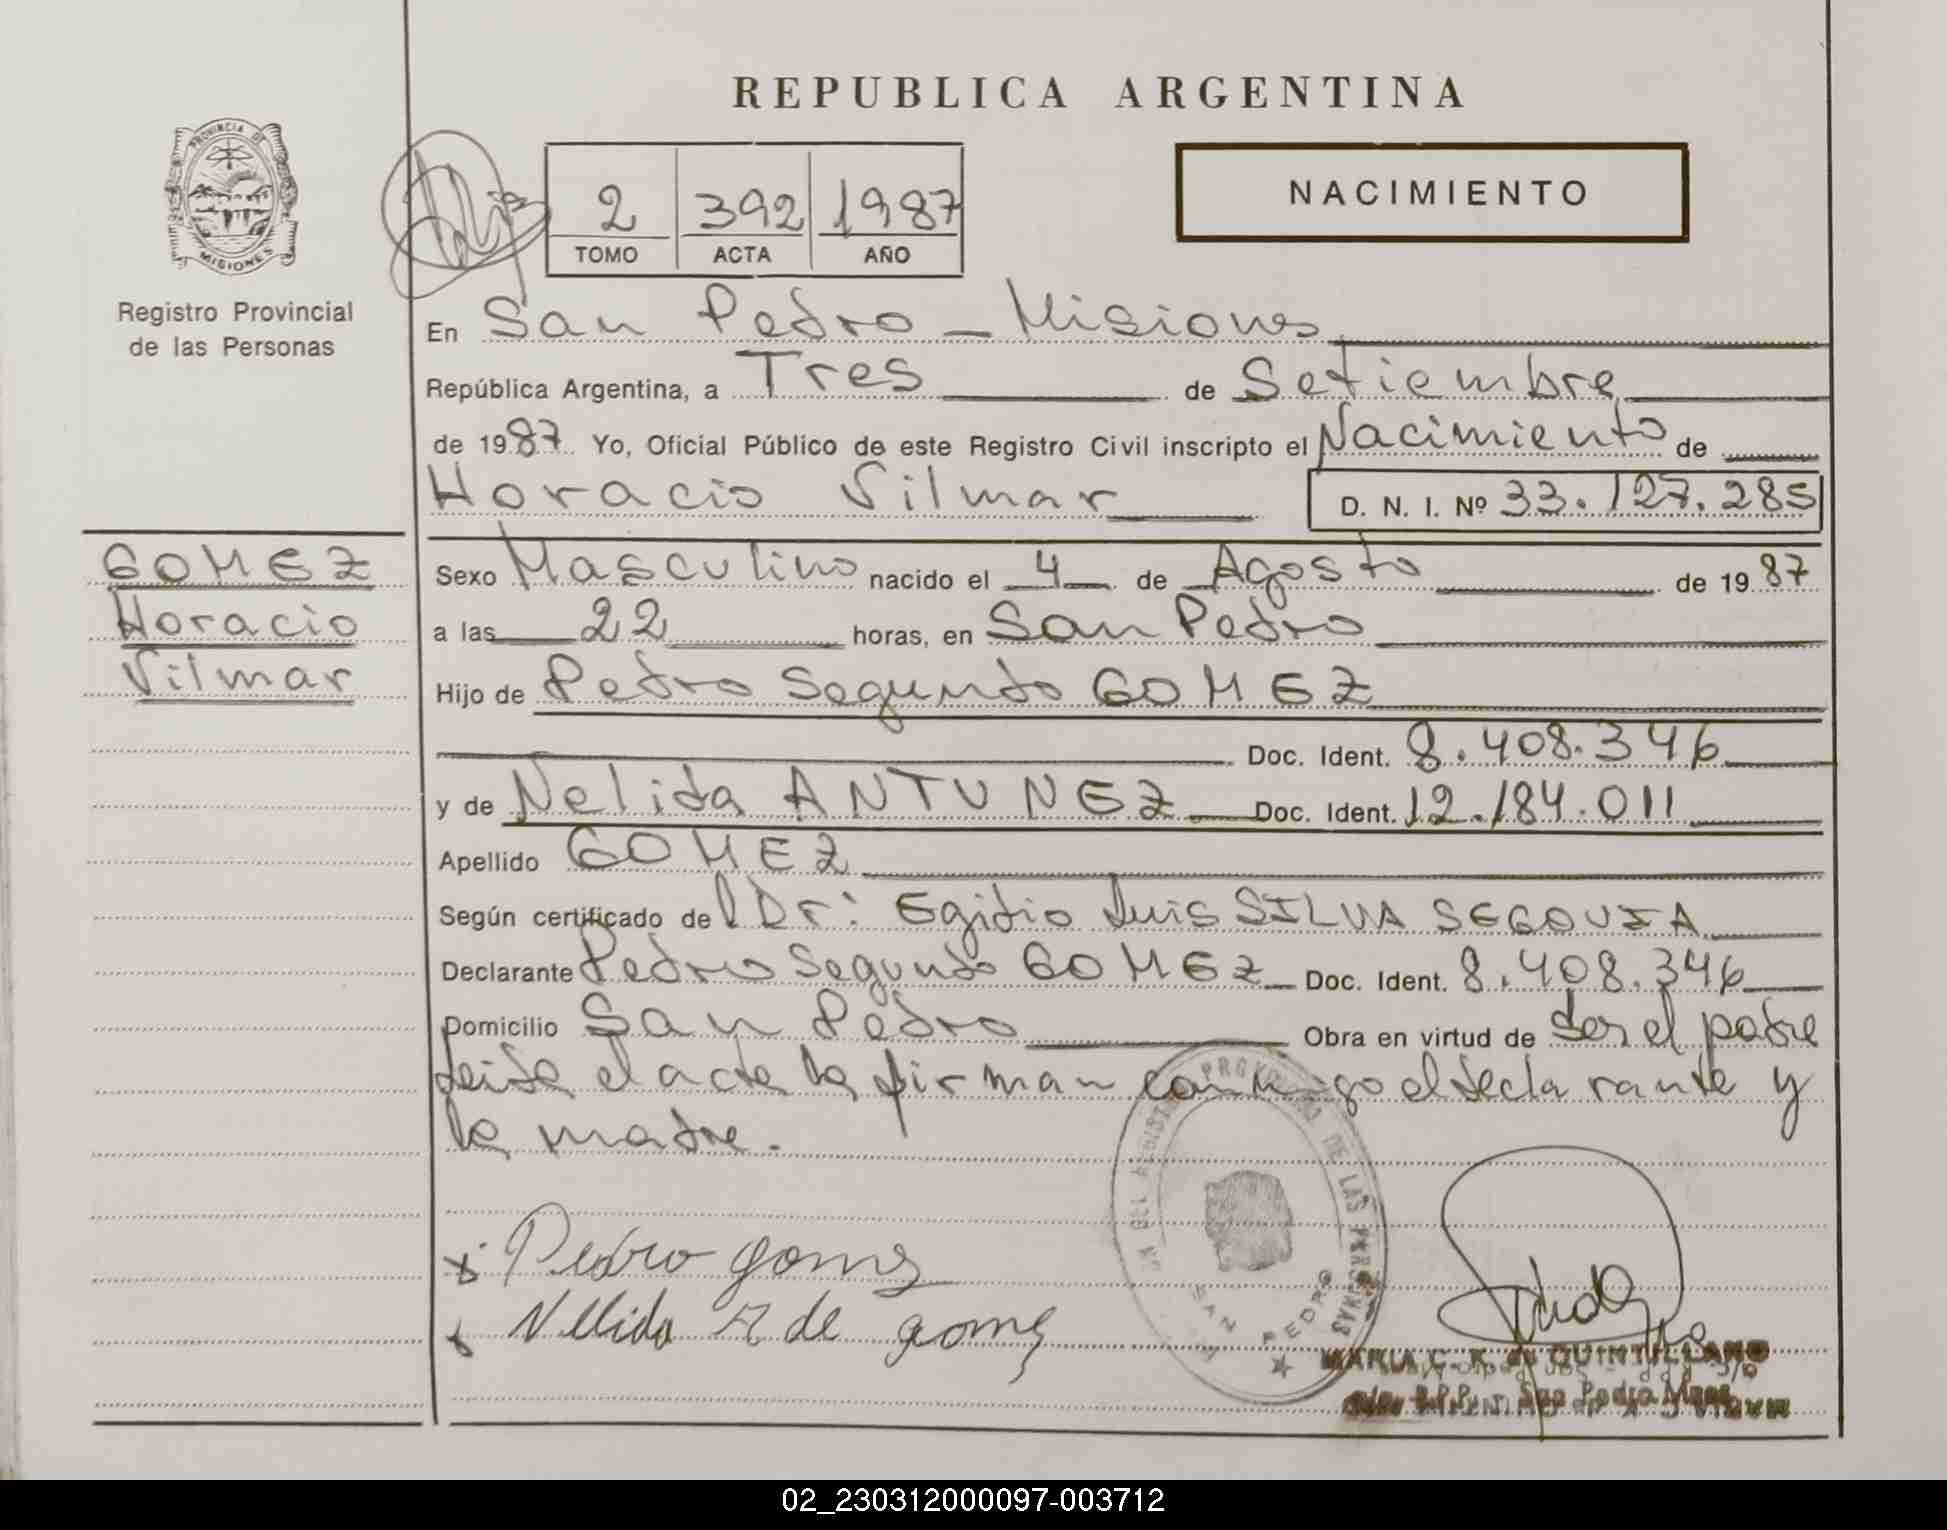 REPUBLICA ARGENTINA
PROVINCIA DE
MISIONES
Registro Provincial
de las Personas
2 392 1987
TOMO ACTA AÑO
NACIMIENTO
En San Pedro - Misiones
República Argentina, a Tres de Setiembre
de 1987 Yo, Oficial Público de este Registro Civil inscripto el Nacimiento de
Horacio Vilmar D. N. I. Nº 33.127.285
GOMEZ
Horacio
Vilmar
Sexo Masculino nacido el 4 de Agosto de 1987
a las 22 horas, en San Pedro
Hijo de Pedro Segundo GOMEZ
Doc. Ident. 8.408.346
y de Nelida ANTUNEZ Doc. Ident. 12.184.011
Apellido GOMEZ
Según certificado del Dr: Egidio Luis SILVA SEGOVIA
Declarante Pedro Segundo GOMEZ Doc. Ident. 8.408.346
Domicilio San Pedro Obra en virtud de Ser el padre
Leida el acta la firman conmigo el declarante y
la madre.
DEL REGISTRO PROVINCIAL DE LAS PERSONAS
SAN PEDRO
x Pedro gomes
x Nellida A de gomes
MARIA C. K. de QUINTILLANO
San Pedro Mnes
02_230312000097-003712